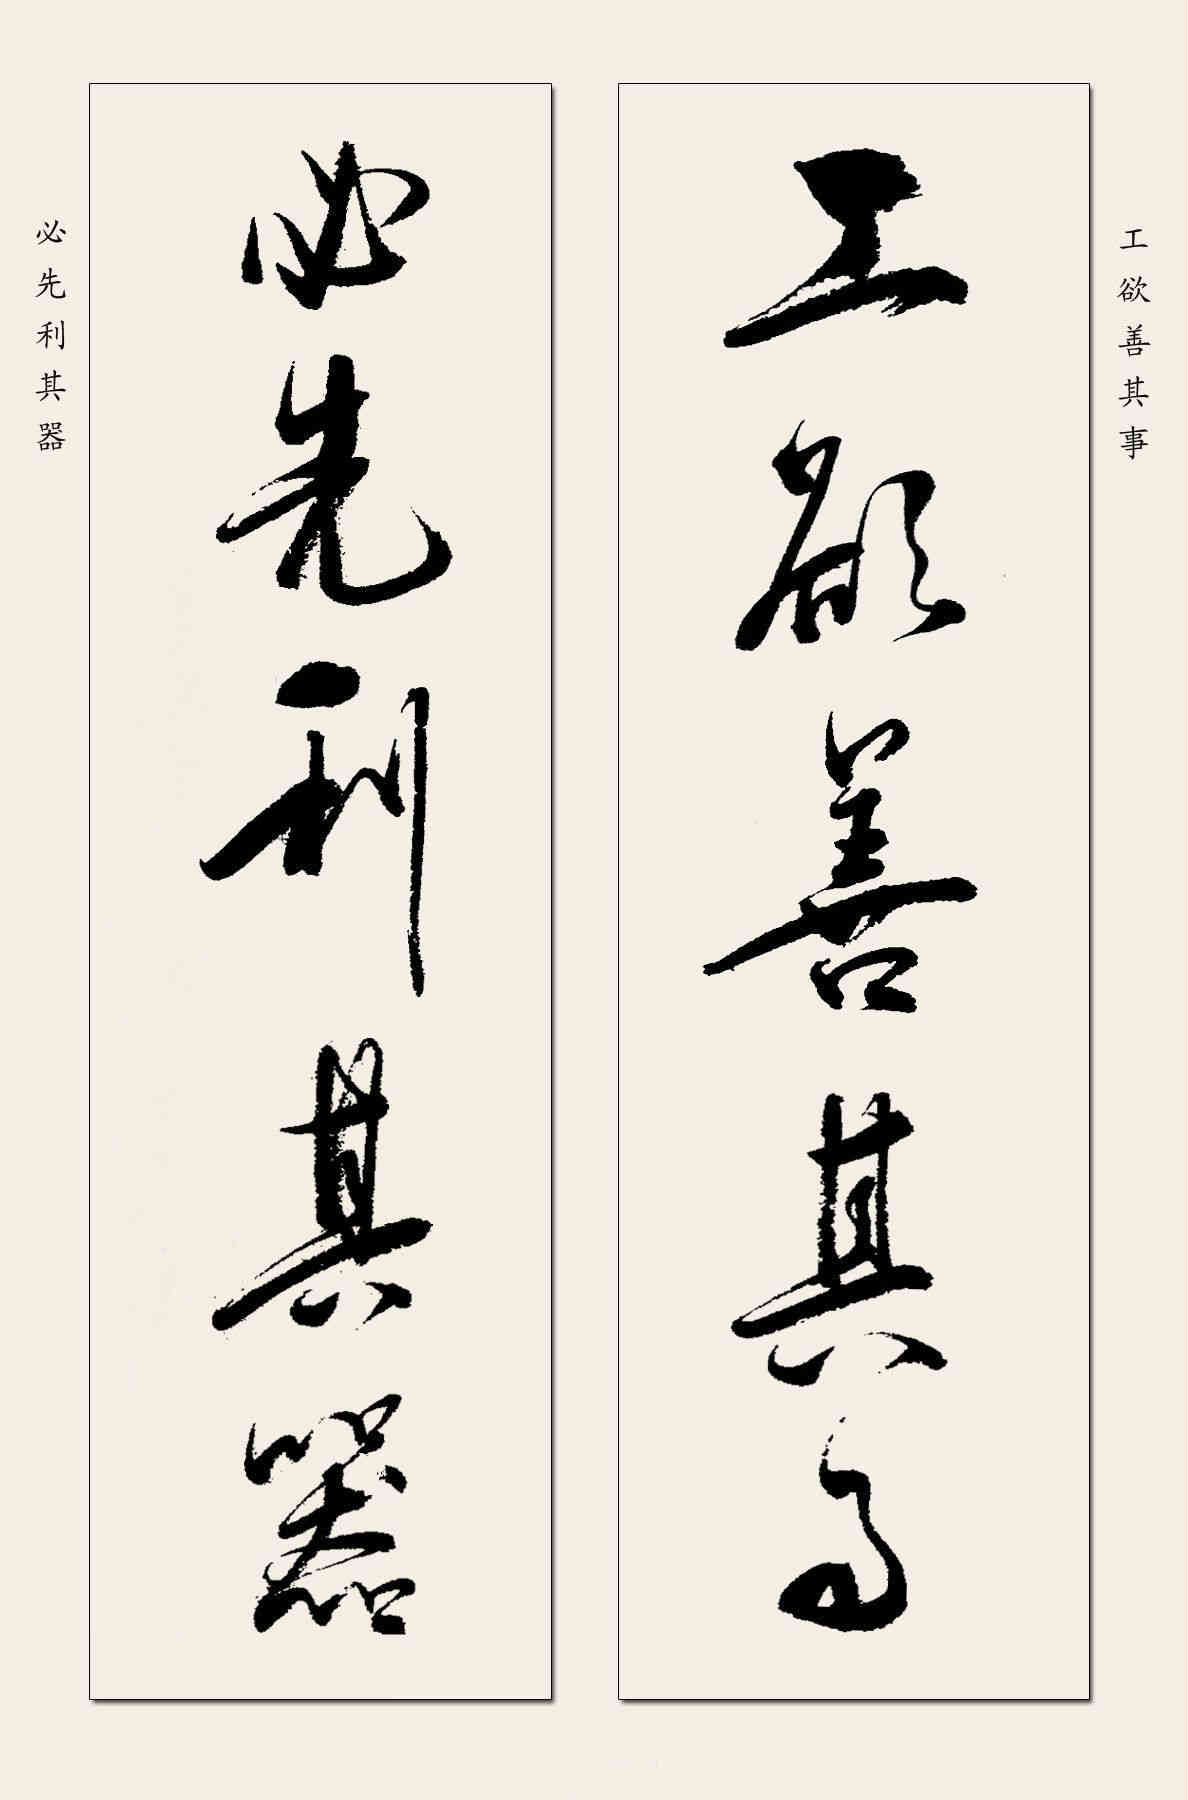 工欲善其事
工欲善其事
必先利其器
必先利其器